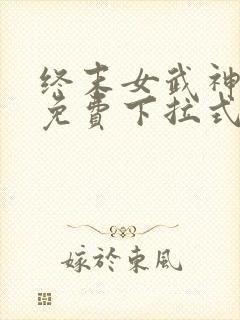 终末女武神
免費下拉式
嫁於東風